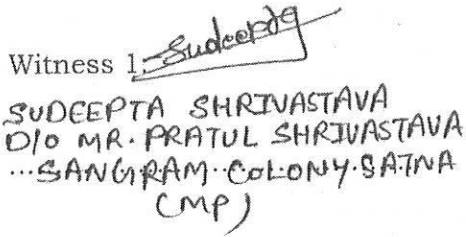 Witness 1: Sudeepta
SUDEEPTA SHRIVASTAVA
D/O MR. PRATUL SHRIVASTAVA
...SANGRAM..COLONY.SATNA
(MP)